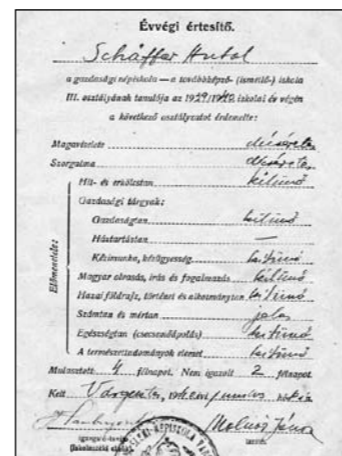 Évvégi értesítő.
Schäffer Antal
a gazdasági népiskola — a továbbképző- (ismétlő-) iskola
III. osztályának tanulója az 1939/1940 iskolai év végén
a következő osztályzatot érdemelte:
Magaviselete dicséretes
Szorgalma dicséretes
Előmenetele:
Hit- és erkölcstan kitűnő
Gazdasági tárgyak:
Gazdaságtan kitűnő
Háztartástan —
Kézimunka, kézügyesség kitűnő
Magyar olvasás, írás és fogalmazás kitűnő
Hazai földrajz, történet és alkotmánytan kitűnő
Számtan és mértan jeles
Egészségtan (csecsemőápolás) kitűnő
A természettudományok elemei kitűnő
Mulasztott 4 félnapot. Nem igazolt 2 félnapot
Kelt Várgesztes
Molnár János
igazgató-tanító
tanító.